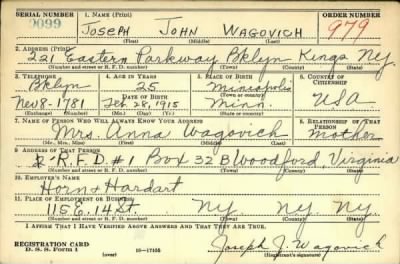 SERIAL NUMBER 1. NAME (Print) ORDER NUMBER
0099 JOSEPH JOHN WAGOVICH 979
(First) (Middle) (Last)
2. ADDRESS (Print)
221 Eastern Parkway Bklyn Kings Ny.
(Number and street or R. F. D. number) (Town) (County) (State)
3. TELEPHONE 4. AGE IN YEARS 5. PLACE OF BIRTH 6. COUNTRY OF CITIZENSHIP
Bklyn 25 Minneapolis
(Town or county)
DATE OF BIRTH
Nev 8-1781 Feb. 28, 1915 Minn. USA
(Exchange) (Number) (Mo.) (Day) (Yr.) (State or country)
7. NAME OF PERSON WHO WILL ALWAYS KNOW YOUR ADDRESS 8. RELATIONSHIP OF THAT PERSON
Mrs. Anna Wagovich Mother
(Mr., Mrs., Miss) (First) (Middle) (Last)
9. ADDRESS OF THAT PERSON
R.F.D #1 Box 32 B Woodford, Virginia
(Number and street or R. F. D. number) (Town) (County) (State)
10. EMPLOYER'S NAME
Horn & Hardart
11. PLACE OF EMPLOYMENT OR BUSINESS
115 E. 14 St. Ny. Ny. Ny.
(Number and street or R. F. D. number) (Town) (County) (State)
I AFFIRM THAT I HAVE VERIFIED ABOVE ANSWERS AND THAT THEY ARE TRUE.
REGISTRATION CARD
D. S. S. Form 1 (over) 16-17105 Joseph J. Wagovich
(Registrant's signature)